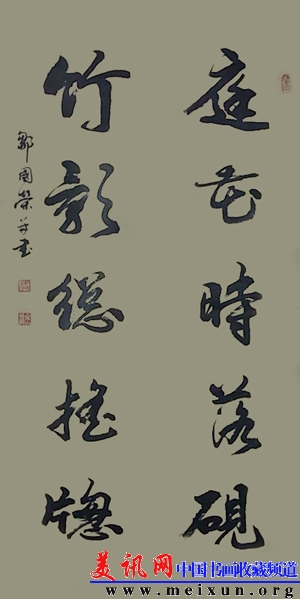 庭花時落硯
竹影總搖牕
鄒國榮書
美讯网 中国书画收藏频道
www.meixun.org